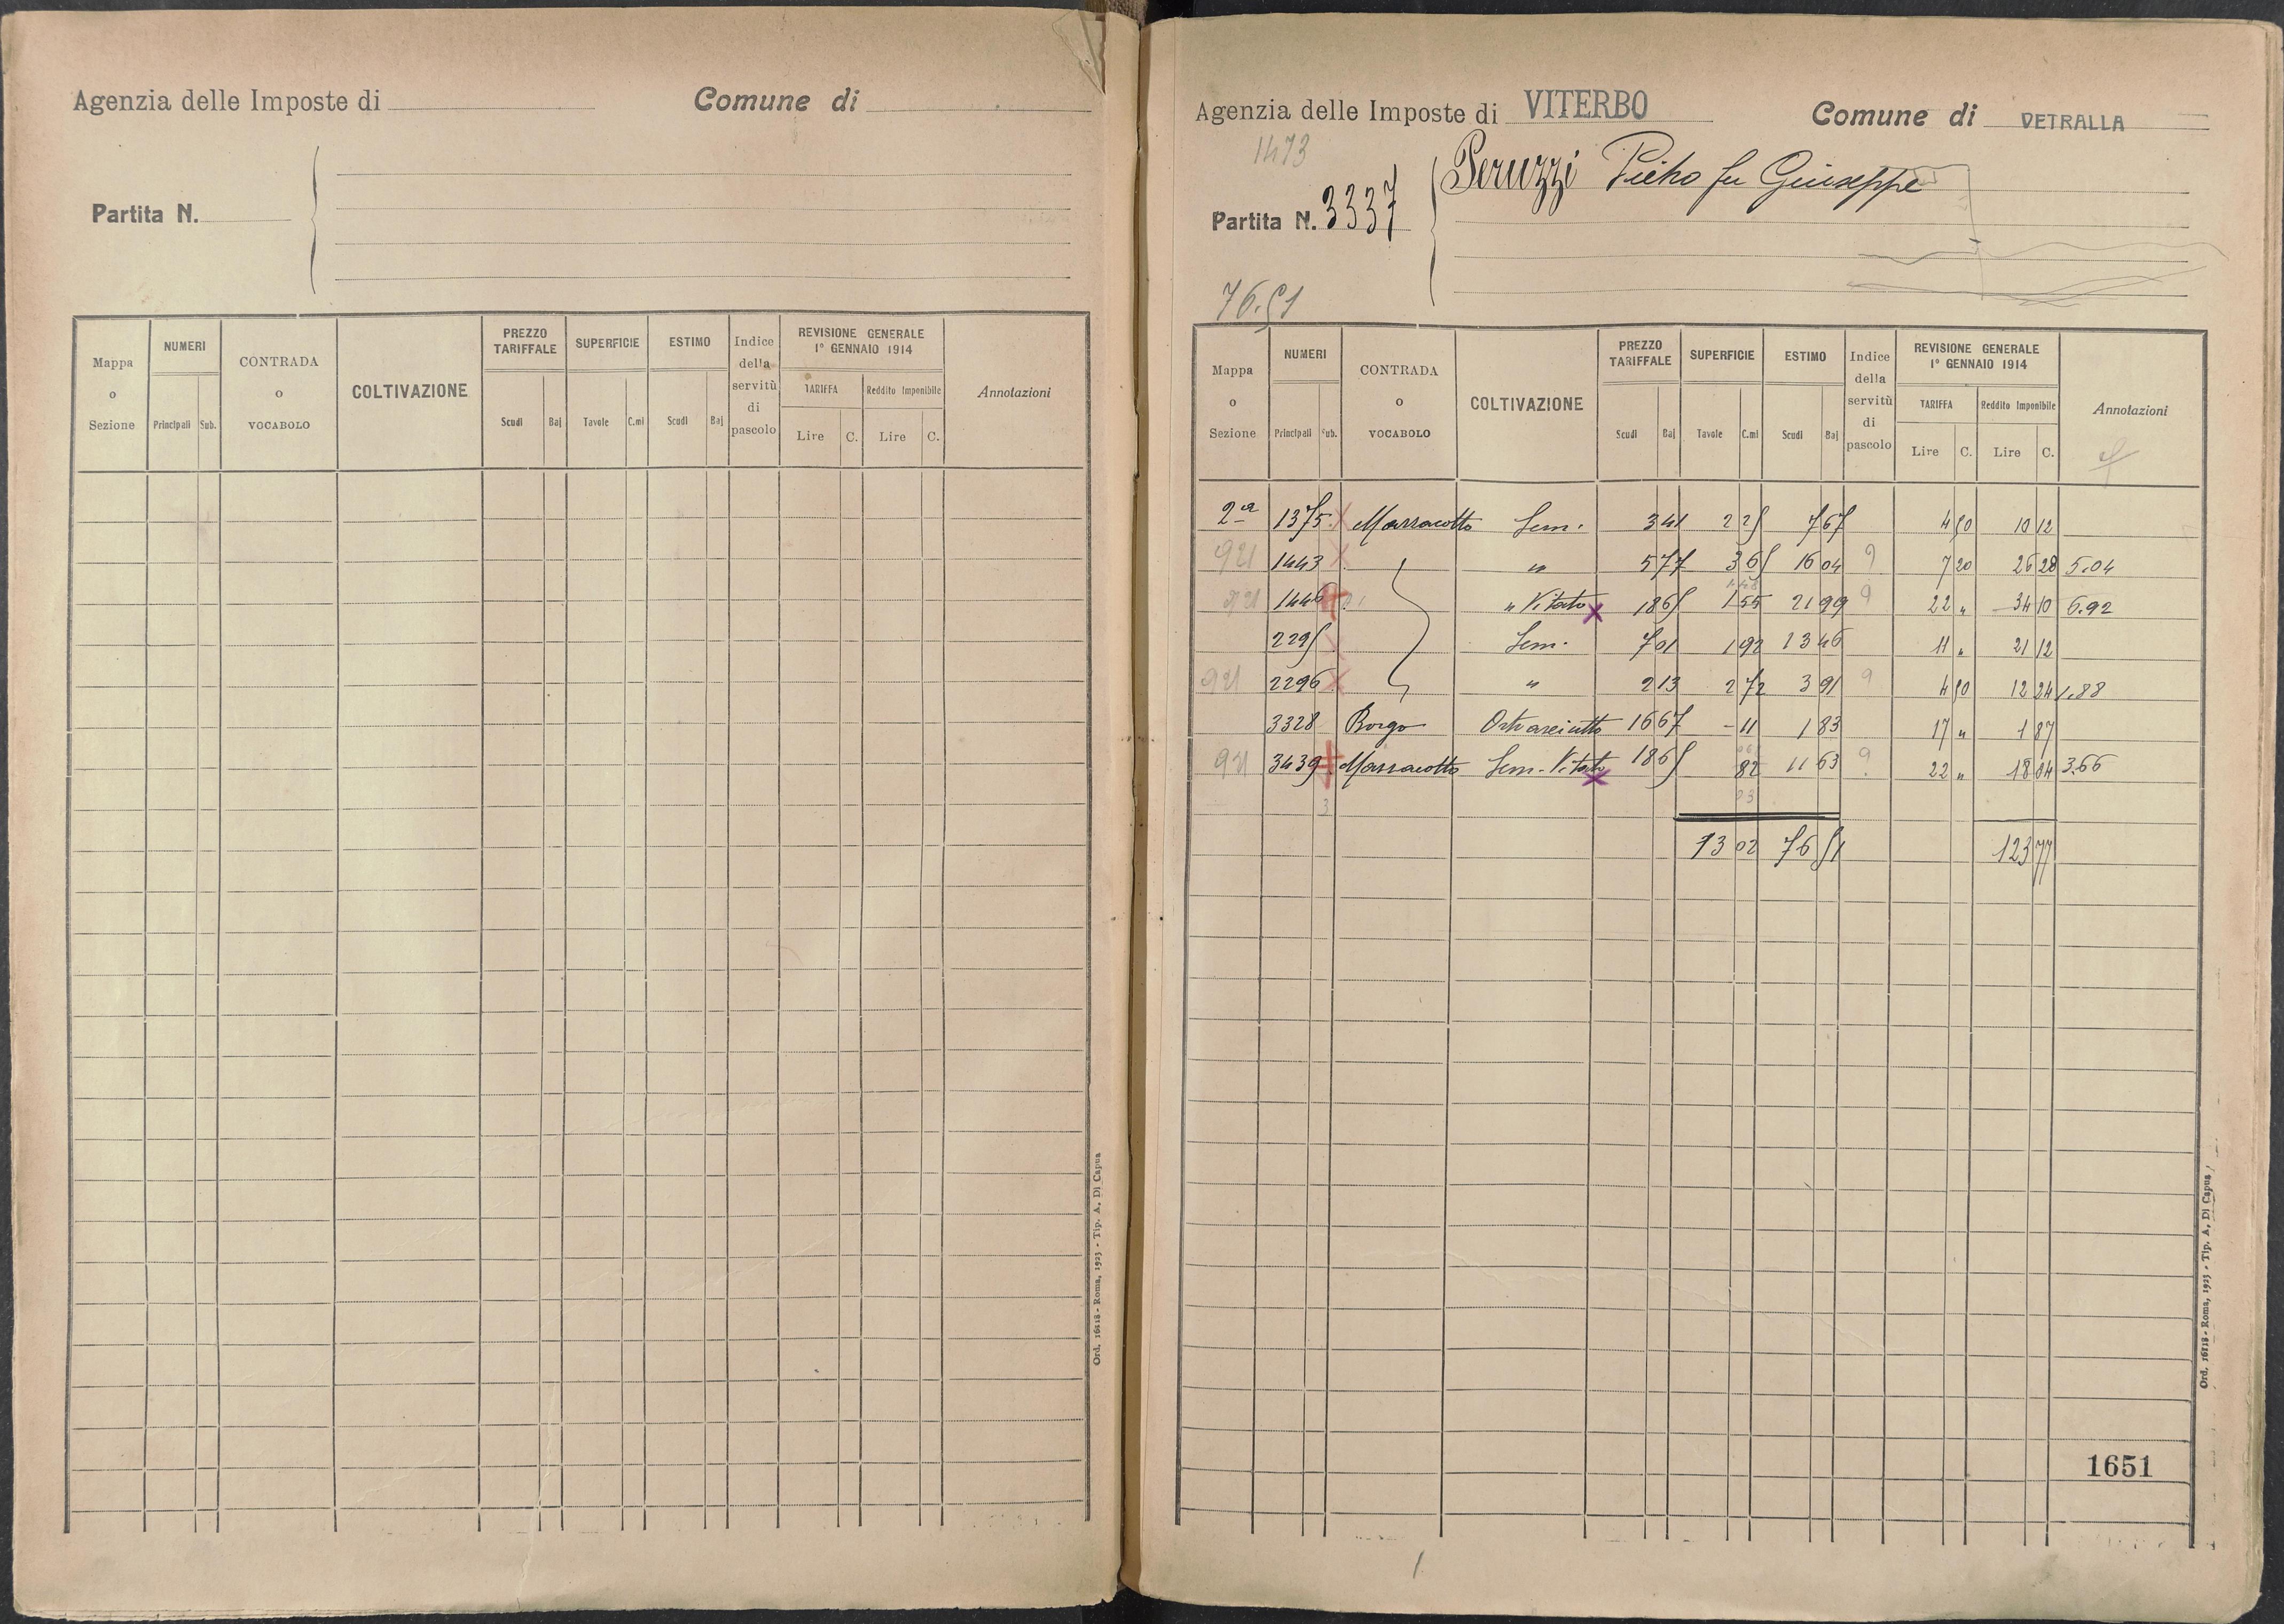 Agenzia delle Imposte di
Comune di
Partita N.
Mappa o Sezione
NUMERI
Principali Sub.
CONTRADA o VOCABOLO
COLTIVAZIONE
PREZZO TARIFFALE
Scudi Baj
SUPERFICIE
Tavole C.mi
ESTIMO
Scudi Baj
Indice della servitù di pascolo
REVISIONE GENERALE 1° GENNAIO 1914
TARIFFA
Lire C.
Reddito Imponibile
Lire C.
Annotazioni
Ord. 16118 - Roma, 1923 - Tip. A. Di Capua
Agenzia delle Imposte di VITERBO
Comune di VETRALLA
1473
Partita N. 3337
Peruzzi Pietro fu Giuseppe
76.51
Mappa o Sezione
NUMERI
Principali Sub.
CONTRADA o VOCABOLO
COLTIVAZIONE
PREZZO TARIFFALE
Scudi Baj
SUPERFICIE
Tavole C.mi
ESTIMO
Scudi Baj
Indice della servitù di pascolo
REVISIONE GENERALE 1° GENNAIO 1914
TARIFFA
Lire C.
Reddito Imponibile
Lire C.
Annotazioni
2a 1375 X Massacotto Sem. 3 41 2 25 7 67 4 50 10 12
921 1443 X " 5 77 3 65 16 04 9 7 20 26 28 5.04
921 1446 " Vitato X 18 65 1 55 21 99 9 22 " 34 10 6.92
2295 Sem. 7 01 1 92 13 46 11 " 21 12
921 2296 X " 2 13 2 72 3 91 9 4 50 12 24 1.88
3328 Borgo Orto asciutto 16 67 - 11 1 83 17 " 1 87
921 3439 Massacotto Sem. Vitato X 18 65 82 11 63 9 22 " 18 04 3.66
3
13 02 76 51 123 77
1651
Ord. 16118 - Roma, 1923 - Tip. A. Di Capua